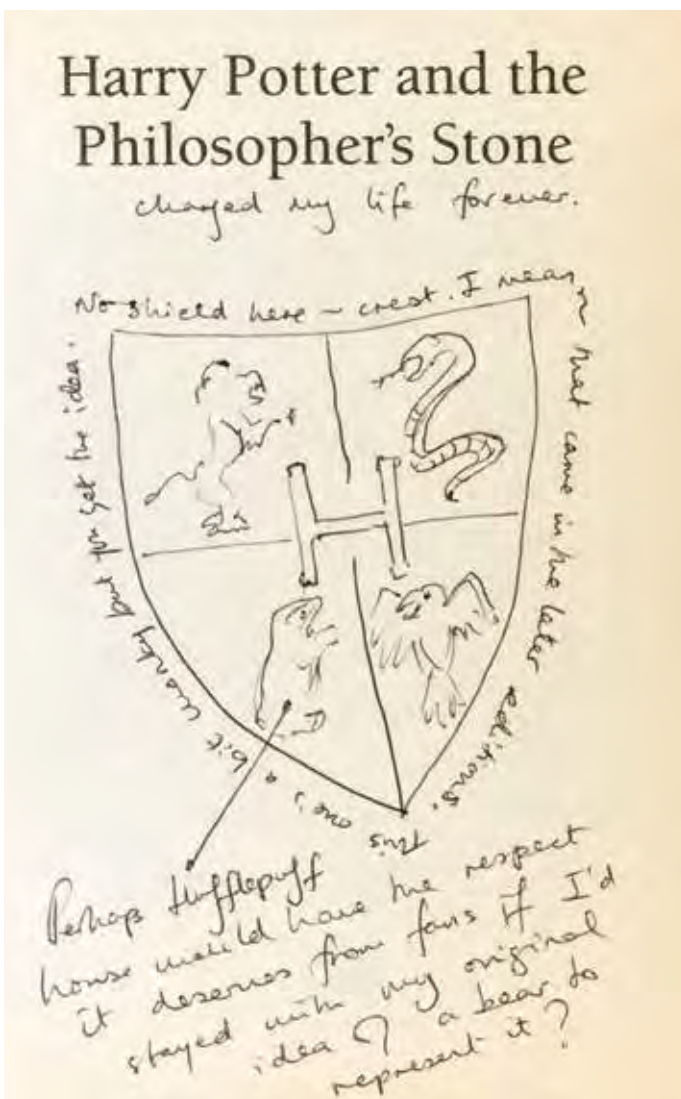 Harry Potter and the
Philosopher's Stone
changed my life forever.
No shield here – crest. I mean
that came in the later editions.
This one's a bit wonky but you get the idea.
H
Perhaps Hufflepuff
house would have the respect
it deserves from fans if I'd
stayed with my original
idea of a bear to
represent it?